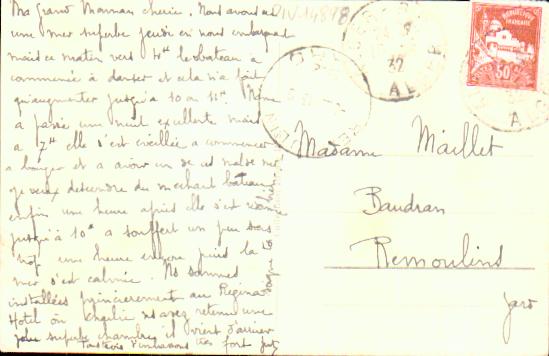 Ma Grand Maman cherie. Nous avons eu
une mer superbe jeudi en nous embarquant
mais ce matin vers 4H le bateau a
commencé a danser et cela n'a fait
qu'augmenter jusqu'a 10 ou 11H.
a passé une nuit excellente mais
a 7H elle s'est eveillée a commencer
a bouger et a avoir un de ces mal de mer
je veux descendre du mechant bateau
enfin une heure après elle s'est
jusqu'a 10H a souffert un peu
une heure encore puis la
mer s'est calmée. Ns sommes
installées princierement au Regina
Hotel où avez retenu une
superbe chambre il vient d'arriver
fort
DIV14818
REPUBLIQUE
FRANÇAISE
50c
32
Madame Maillet
Baudran
Remoulins
Gard